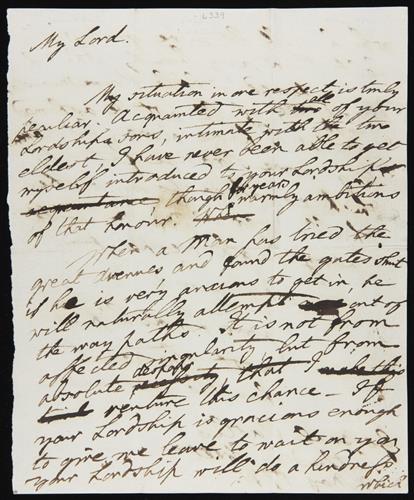 L 334
My Lord.
My situation in one respect is truly
peculiar. Acquainted with all of your
Lordships sons, intimate with the two
eldest, I have never been able to get
myself introduced to your Lordship's
acquaintance, though for years warmly ambitious
of that honour.
When a Man has tried the
great avenues and found the gates shut
if he is very anxious to get in, he
will naturally attempt out of
the way paths. It is not from
affected singularity but from
absolute despair that I make this
venture this chance — If
your Lordship is gracious enough
to give me leave to wait on you
your Lordship will do a kindness
which